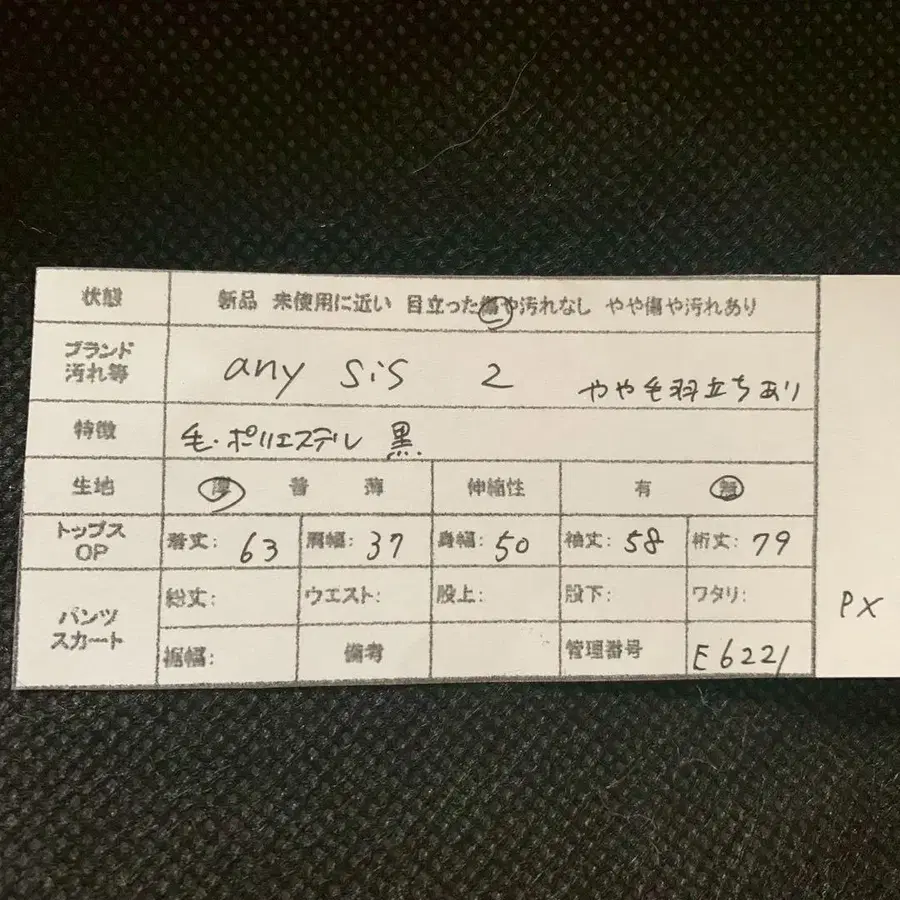 状態 新品 未使用に近い 目立った傷や汚れなし やや傷や汚れあり
ブランド
汚れ等
any sis 2 やや毛羽立ちあり
特徴 毛・ポリエステル 黒
生地 厚 普 薄 伸縮性 有 無
トップス
OP
着丈: 63 肩幅: 37 身幅: 50 袖丈: 58 裄丈: 79
パンツ
スカート
総丈: ウエスト: 股上: 股下: ワタリ:
裾幅: 備考 管理番号 E6221
PX